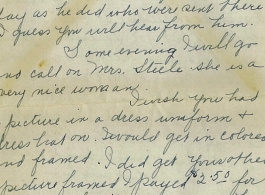 day as he did who were sent there
I guess you will hear from him.
Some evening I will go
and call on Mrs. Steele she is a
very nice woman.
I wish you had
picture in a dress uniform &
dress hat on. I would get in colored
and framed. I did get your other
picture framed I payed $2.50 for